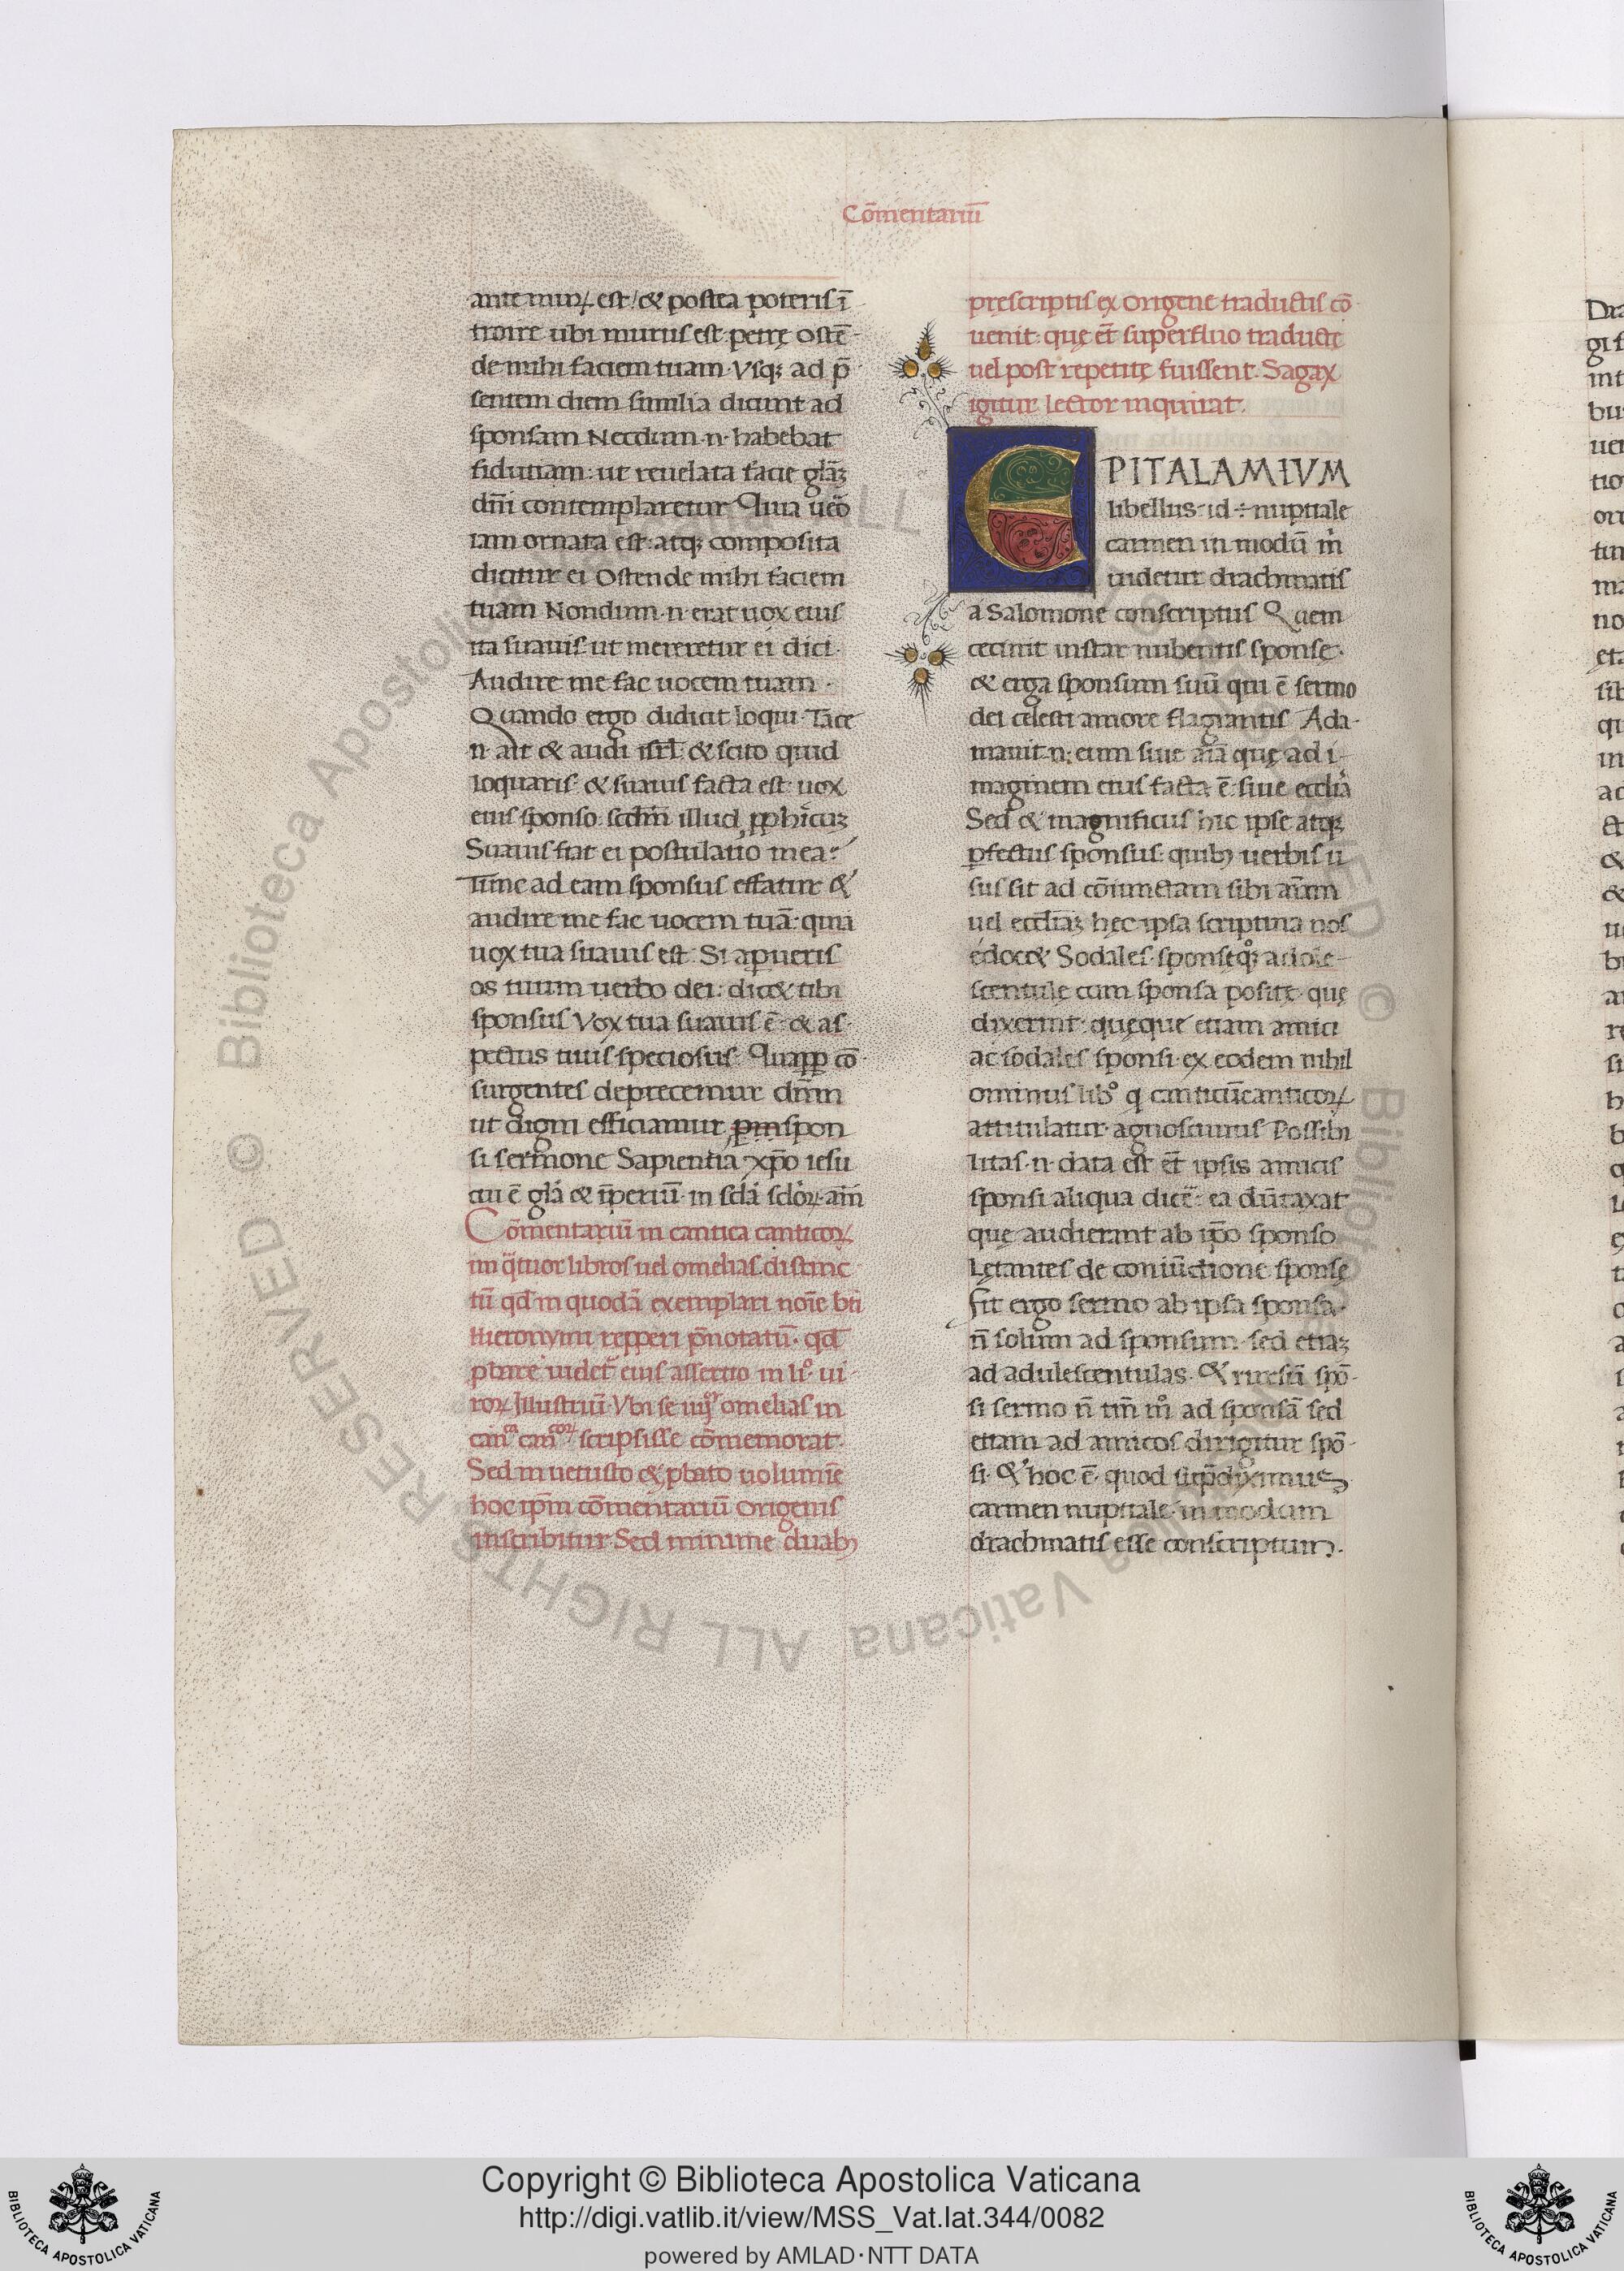 Cōmentariū
ante murꝝ est / & postea poteris ī
troire ubi murus est petrę Ostē-
de mihi faciem tuam Vsqꝫ ad p̄
sentem diem similia dicunt ad
sponsam Necdum .n. habebat
fidutiam: ut reuelata facie glāꝫ
dn̄i contemplaretur Quia ueō
iam ornata est: atqꝫ composita
dicitur ei Ostende mihi faciem
tuam Nondum .n. erat uox eius
ita suauis ut mereretur ei dici.
Audire me fac uocem tuam.
Quando ergo didicit loqui. Tace
.n. ait & audi isrl̄ & scito quid
loquaris & suauis facta est uox
eius sponso. scd̄m illud ꝓphīcuꝫ
Suauis fiat ei postulatio mea:
Tunc ad eam sponsus effatur &
audire me fac uocem tuā: quia
uox tua suauis est. Si aperueris
os tuum uerbo dei: dic& tibi
sponsus Vox tua suauis ē. & as-
pectus tuus speciosus. Quapp cō
surgentes deprecemur dn̄m
ut digni efficiamur spon
si sermone Sapientia xp̄o iesu
cui ē gl̄a & īperiū in scl̄a scl̄oꝝ am̄
Cōmentariū in cantica canticoꝝ
in q̄tuor libros uel omelias distinc
tū qd̄ in quodā exemplari noīe bt̄i
Hieronymi repperi p̄notatū. qd̄
ꝓbare uidet᷑ eius assertio in li.º ui-
roꝝ Illustriū Vbi se iiijºʳ omelias in
canᶜᵃ canᶜᵒʳꝝ scripsisse cōmemorat.
Sed in uetusto & ꝓbato uolumīe
hoc ip̄m cōmentariū Origenis
inscribitur Sed minime duabꝫ
pręscriptis ex Origene traductis cō-
uenit: quę et̄ superfluo traductę
uel post repetitę fuissent. Sagax
igitur lector inquirat.
EPITALAMIVM
libellus. id ÷ nuptiale
carmen in modū m̄
uidetur drachmatis
a Salomone conscriptus Quem
cecinit instar nubentis sponsę.
& erga sponsum suū qui ē sermo
dei cęlesti amore flagrantis Ada-
mauit .n. eum siue aīa quę ad i-
maginem eius facta ē. siue eccl̄ia
Sed & magnificus hic ipse atqꝫ
ꝑfectus sponsus: quibꝫ uerbis u
sus sit ad cōiunctam sibi aīam
uel eccl̄iaꝫ hęc ipsa scriptura nos
edoc& Sodales sponseqꝫ adole-
scentulę cum sponsa positę quę
dixerint: quęque etiam amici
ac sodales sponsi. ex eodem nihil
ominus lib.º q canticūcanticoꝝ
attitulatur. agnoscimus Possibi
litas .n. data est et̄ ipsis amicis
sponsi aliqua dic̄e: ea dūtaxat
quę audierant ab ip̄o sponso
Lętantes de coniūctione sponsę
Fit ergo sermo ab ipsa sponsa.
n̄ solum ad sponsum. sed etiaꝫ
ad adulescentulas. Et rursū spō-
si sermo n̄ tm̄ mº ad sponsā sed
etiam ad amicos dirigitur spō-
si. Et hoc ē quod sup̄diximus
carmen nuptiale in modum
drachmatis esse conscriptum.
© Biblioteca Apostolica Vaticana ALL RIGHTS RESERVED
Copyright © Biblioteca Apostolica Vaticana
http://digi.vatlib.it/view/MSS_Vat.lat.344/0082
powered by AMLAD·NTT DATA
BIBLIOTECA APOSTOLICA VATICANA
BIBLIOTECA APOSTOLICA VATICANA